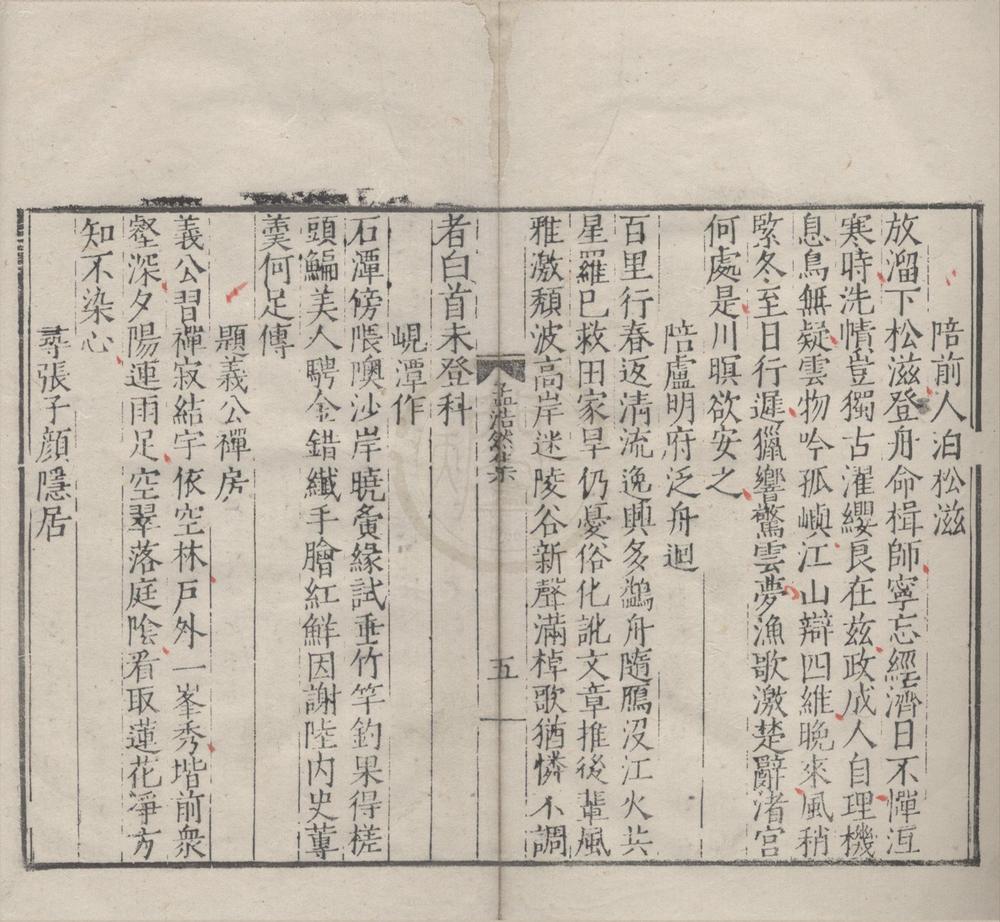 陪前人泊松滋
放溜下松滋登舟命楫師寧忘經濟日不憚沍
寒時洗幘豈獨古濯纓良在兹政成人自理機
息鳥無疑雲物吟孤嶼江山辯四維晚來風稍
緊冬至日行遲獵響驚雲夢漁歌激楚辭渚宮
何處是川暝欲安之
陪盧明府泛舟迴
百里行春返清流逸興多鷁舟隨鴈没江火共
星羅已救田家旱仍憂俗化訛文章推後輩風
雅激頽波高岸迷陵谷新聲滿棹歌猶憐不調
孟浩然集
五
者白首未登科
峴潭作
石潭傍隈隩沙岸曉夤緣試垂竹竿釣果得槎
頭鯿美人騁金錯纖手膾紅鮮因謝陸内史蓴
羹何足傳
題義公禪房
義公習禪寂結宇依空林戶外一峯秀堦前衆
壑深夕陽連雨足空翠落庭陰看取蓮花淨方
知不染心
尋張子顔隱居